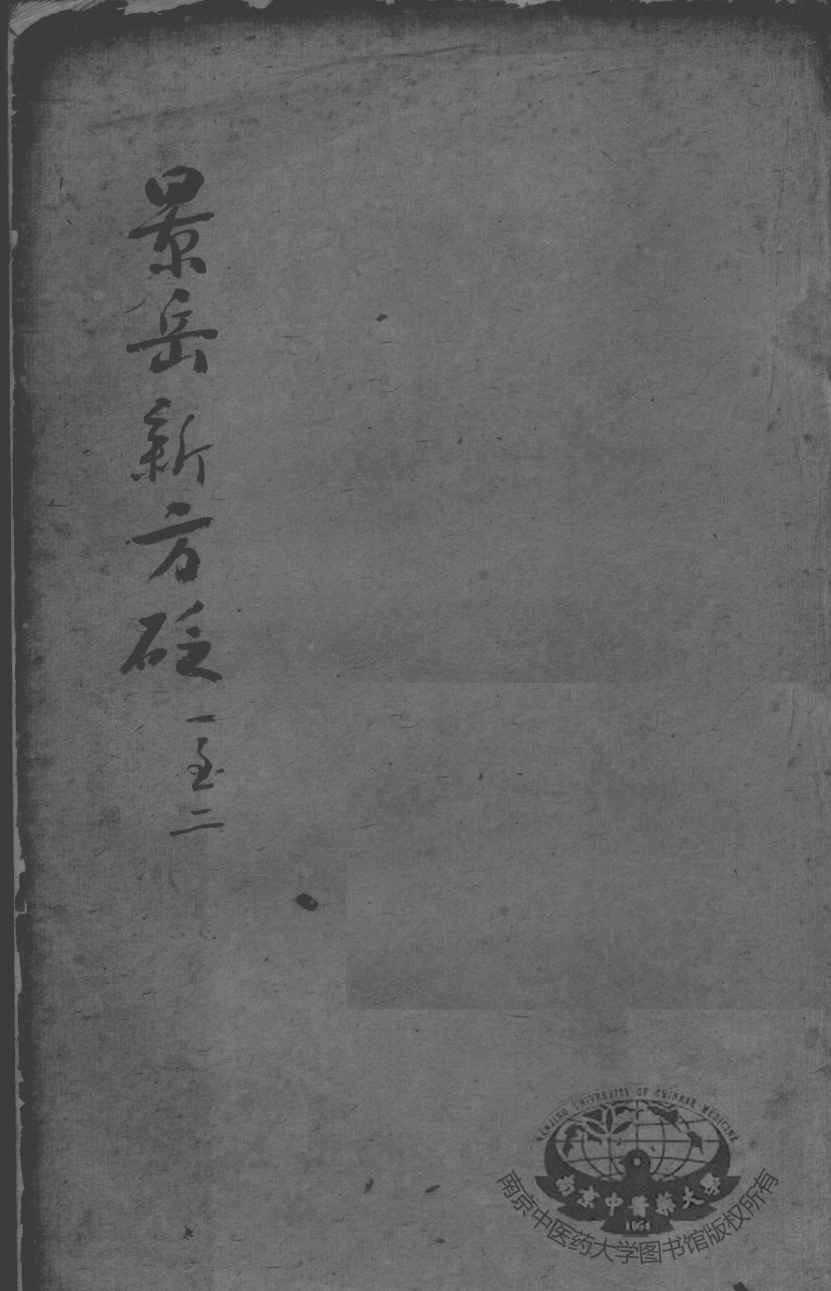 景岳新方砭
一至二
NANJING UNIVERSITY OF CHINESE MEDICINE
南京中醫藥大學
1954
南京中医药大学图书馆版权所有